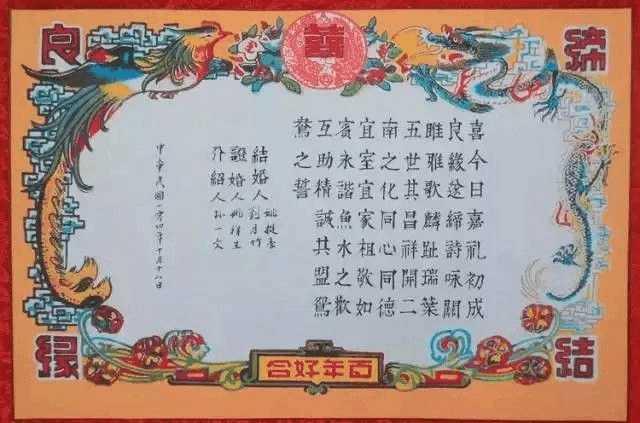 囍
締結
良緣
喜今日嘉礼初成
良緣遂締詩咏關
雎雅歌麟趾瑞葉
五世其昌祥開二
南之化同心同德
宜室宜家相敬如
賓永諧魚水之歡
互助精誠共盟鴛
鴦之誓
結婚人 劉月竹
證婚人
介紹人 孙一文
中華民國一零四年十月十八日
百年好合